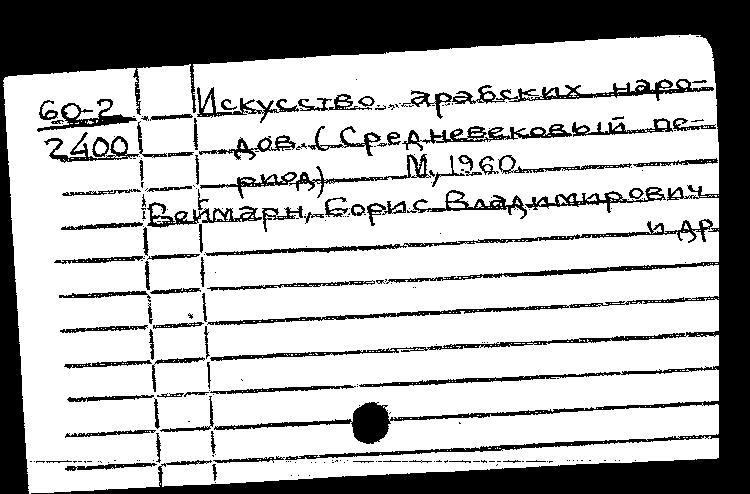 60-2 Искусство арабских наро-
2400 дов. (Средневековый пе-
риод) М., 1960.
Веймарн, Борис Владимирович
и др